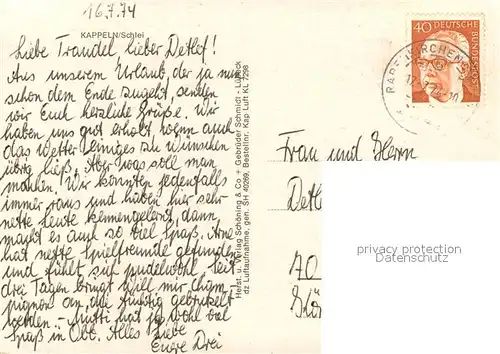 16.7.74
KAPPELN/Schlei
Liebe Traudel, lieber Detlef!
Aus unserem Urlaub, der ja nun
schon dem Ende zugeht, senden
wir Euch herzliche Grüße. Wir
haben uns gut erholt, wenn auch
das Wetter einiges zu wünschen
übrig ließ. Aber was soll man
machen. Wir konnten jedenfalls
immer raus und haben hier sehr
nette Leute kennengelernt, dann
macht es auch so viel Spaß. Arne
hat nette Spielfreunde gefunden
und fühlt sich pudelwohl. Seit
drei Tagen bringt Willi mir Cham-
pignon an, die tüchtig gebrutzelt
werden. - Mutti hat ja wohl viel
Spaß in Obe. Alles Liebe
Eure Drei
Herst. u. Verlag Schöning & Co + Gebrüder Schmidt - Lübeck
dz Luftaufnahme, gen. SH 40269, Bestellnr. Kap Luft KL 7298
40 DEUTSCHE
BUNDESPOST
Frau und Herrn
Detl
40
privacy protection